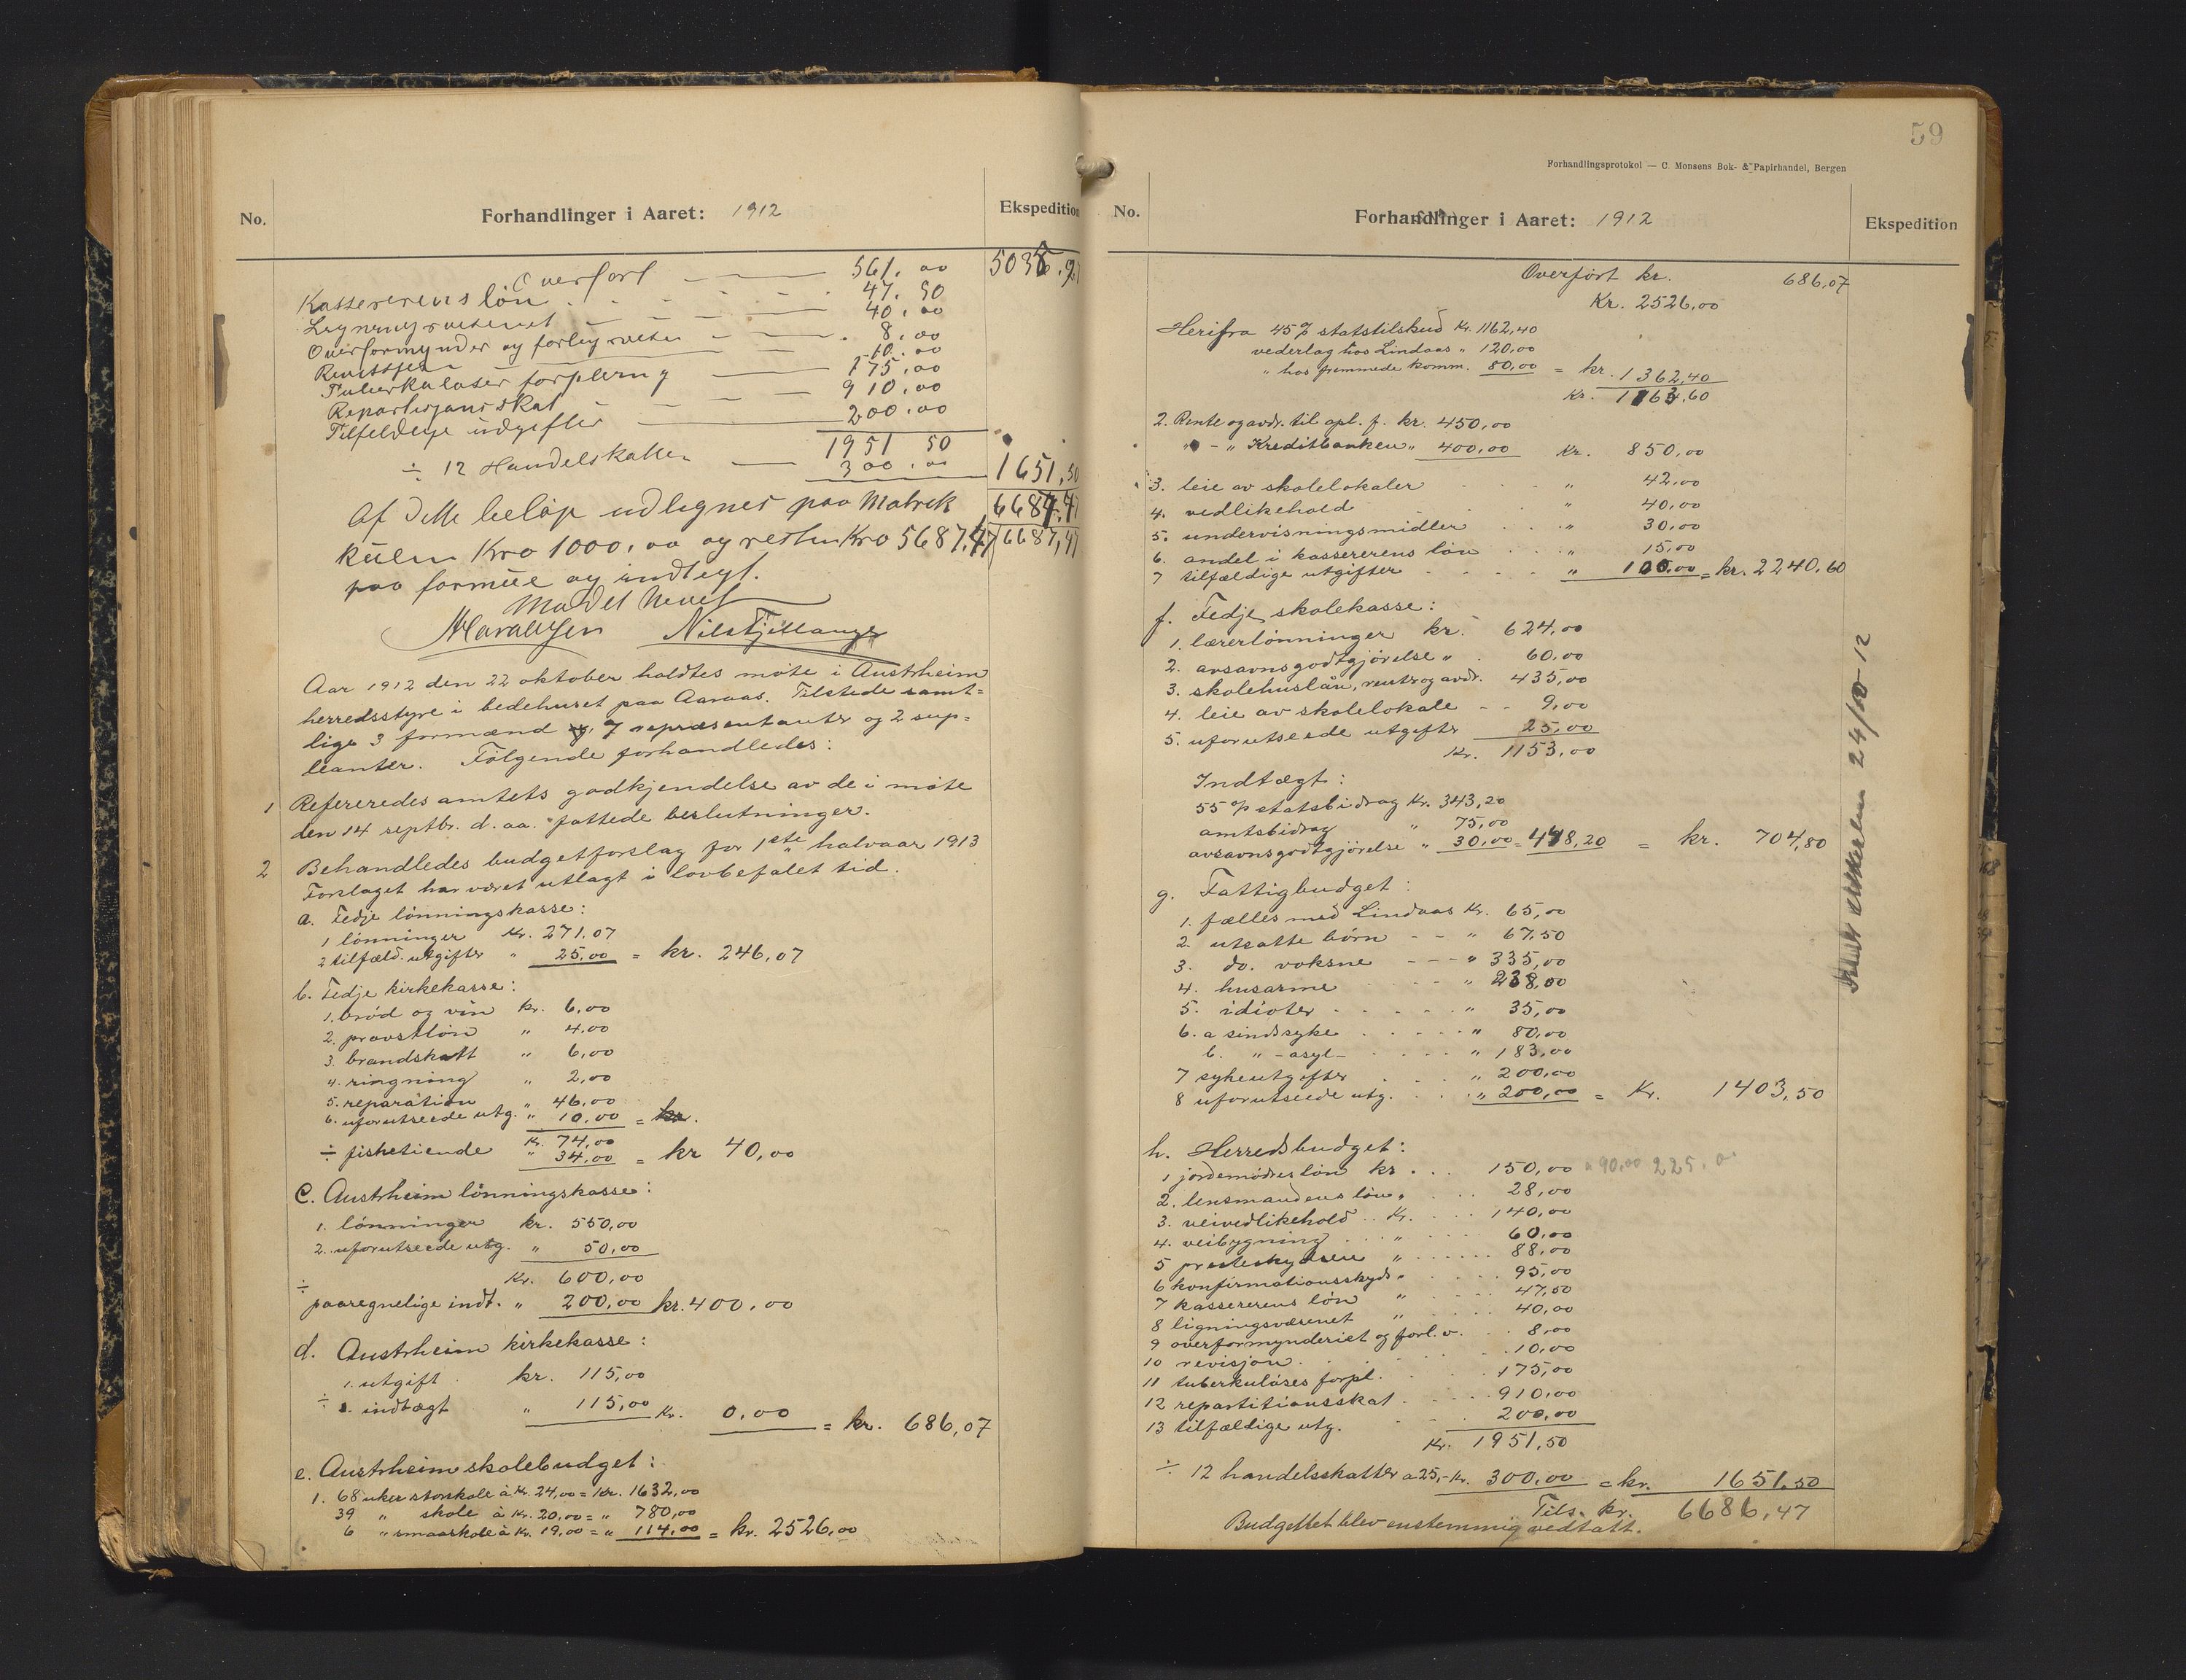 No.
Forhandlinger i Aaret: 1912
Ekspedition
Overført 561.00 5035.97
Kassererens løn 47.50
Ligningsvæsenet 40.00
Overformynder og forligsvæsen 8.00
Revissjon 10.00
Tuberkuløses forpleining 175.00
Repartisjonsskat 910.00
Tilfeldige udgifter 200.00
1951 50
÷ 12 Handelskatter 300.00 1651,50
6687,47
Af dette beløp udlignes paa Matrik
külen Kro 1000,00 og resten Kro 5687,47 6687,47
paa formue og indtegt.
Mødet hevet
Nils Fjellanger
Aar 1912 den 22 oktober holdtes møte i Austrheim
herredsstyre i bedehuset paa Aaraas. Tilstede samt=
lige 3 formænd og 7 repræsentanter og 2 sup=
leanter. Følgende forhandledes:
1 Refereredes amtets godkjendelse av de i møte
den 14 septbr. d. aa. fattede beslutninger.
2 Behandledes budgetforslag for 1ste halvaar 1913
Forslaget har været utlagt i lovbefalet tid.
a. Fedje lønningskasse:
1 lønninger Kr. 271,07
2 tilfæld. utgifter " 25,00 = kr. 246,07
b. Fedje kirkekasse:
1. brød og vin kr. 6,00
2. provstløn " 4,00
3. brandskatt " 6,00
4. ringning " 2,00
5. reparation " 46,00
6. uforutseede utg. " 10,00 = kr.
Kr. 74,00
÷ fisketiende " 34,00 = kr 40,00
c. Austrheim lønningskasse:
1. lønninger kr. 550,00
2. uforutseede utg. " 50,00
Kr. 600,00
÷
paaregnelige indt. " 200,00 kr. 400,00
d. Austrheim kirkekasse:
1. utgift kr. 115,00
÷ indtægt " 115,00 Kr. 0,00 = kr. 686,07
e. Austrheim skolebudget:
1. 68 uker storskole à Kr. 24,00 = Kr. 1632,00
39 " skole à Kr. 20,00 = " 780,00
6 " smaaskole à Kr. 19,00 = " 114,00 = kr. 2526,00
59
Forhandlingsprotokol — C. Monsens Bok- & Papirhandel, Bergen
No.
Forhandlinger i Aaret: 1912
Ekspedition
Overført kr. 686,07
Kr. 2526,00
Herifra 45% statstilskud Kr. 1162,40
vederlag hos Lindaas " 120,00
" hos fremmede komm. 80,00 = kr. 1362,40
Kr. 1163,60
2. Rente og avdr. til opl. f. kr. 450,00
" - " Kreditbanken " 400,00 Kr. 850,00
3. leie av skolelokaler " 42,00
4. vedlikehold " 40,00
5. undervisningsmidler " 30,00
6. andel i kassererens løn " 15,00
7 tilfældige utgifter " 100,00 = kr. 2240,60
f. Fedje skolekasse:
1. lærerlønninger kr. 624,00
2. avsavnsgodtgjørelse " 60,00
3. skolehuslån, rente og avdr. 435,00
4. leie av skolelokale - - 9,00
5. uforutseede utgifter 25,00
Kr. 1153,00
Indtægt:
55% statsbidrag Kr. 343,20
amtsbidrag " 75,00
avsavnsgodtgjørelse " 30,00 = 448,20 = kr. 704,80
g. Fattigbudget:
1. fælles med Lindaas Kr. 65,00
2. utsatte børn - - " 67,50
3. do. voksne - - - " 335,00
4. husarme " 238,00
5. idioter " 35,00
6. a sindssyke " 80,00
b. " -asyl- " 183,00
7 sykeutgifter " 200,00
8 uforutseede utg. " 200,00 = Kr. 1403,50
h. Herredsbudget:
1 jordemødres løn kr. 150,00 a 90,00 225.00
2. lensmandens løn " 28,00
3. veivedlikehold Kr. 140,00
4. veibygning " 60,00
5 presteskydsen " 88,00
6 konfirmationsskyds " 95,00
7 kassererens løn " 47,50
8 ligningsvæsenet " 40,00
9 overformynderiet og forl. v. 8,00
10 revisjon 10,00
11 tuberkuløses forpl. 175,00
12 repartitionsskat 910,00
13 tilfældige utg. 200,00
Kr. 1951,50
÷ 12 handelsskatter a 25,- Kr. 300,00 = kr. 1651,50
Tils. kr. 6686,47
Budgettet blev enstemmig vedtatt.
24/10-12